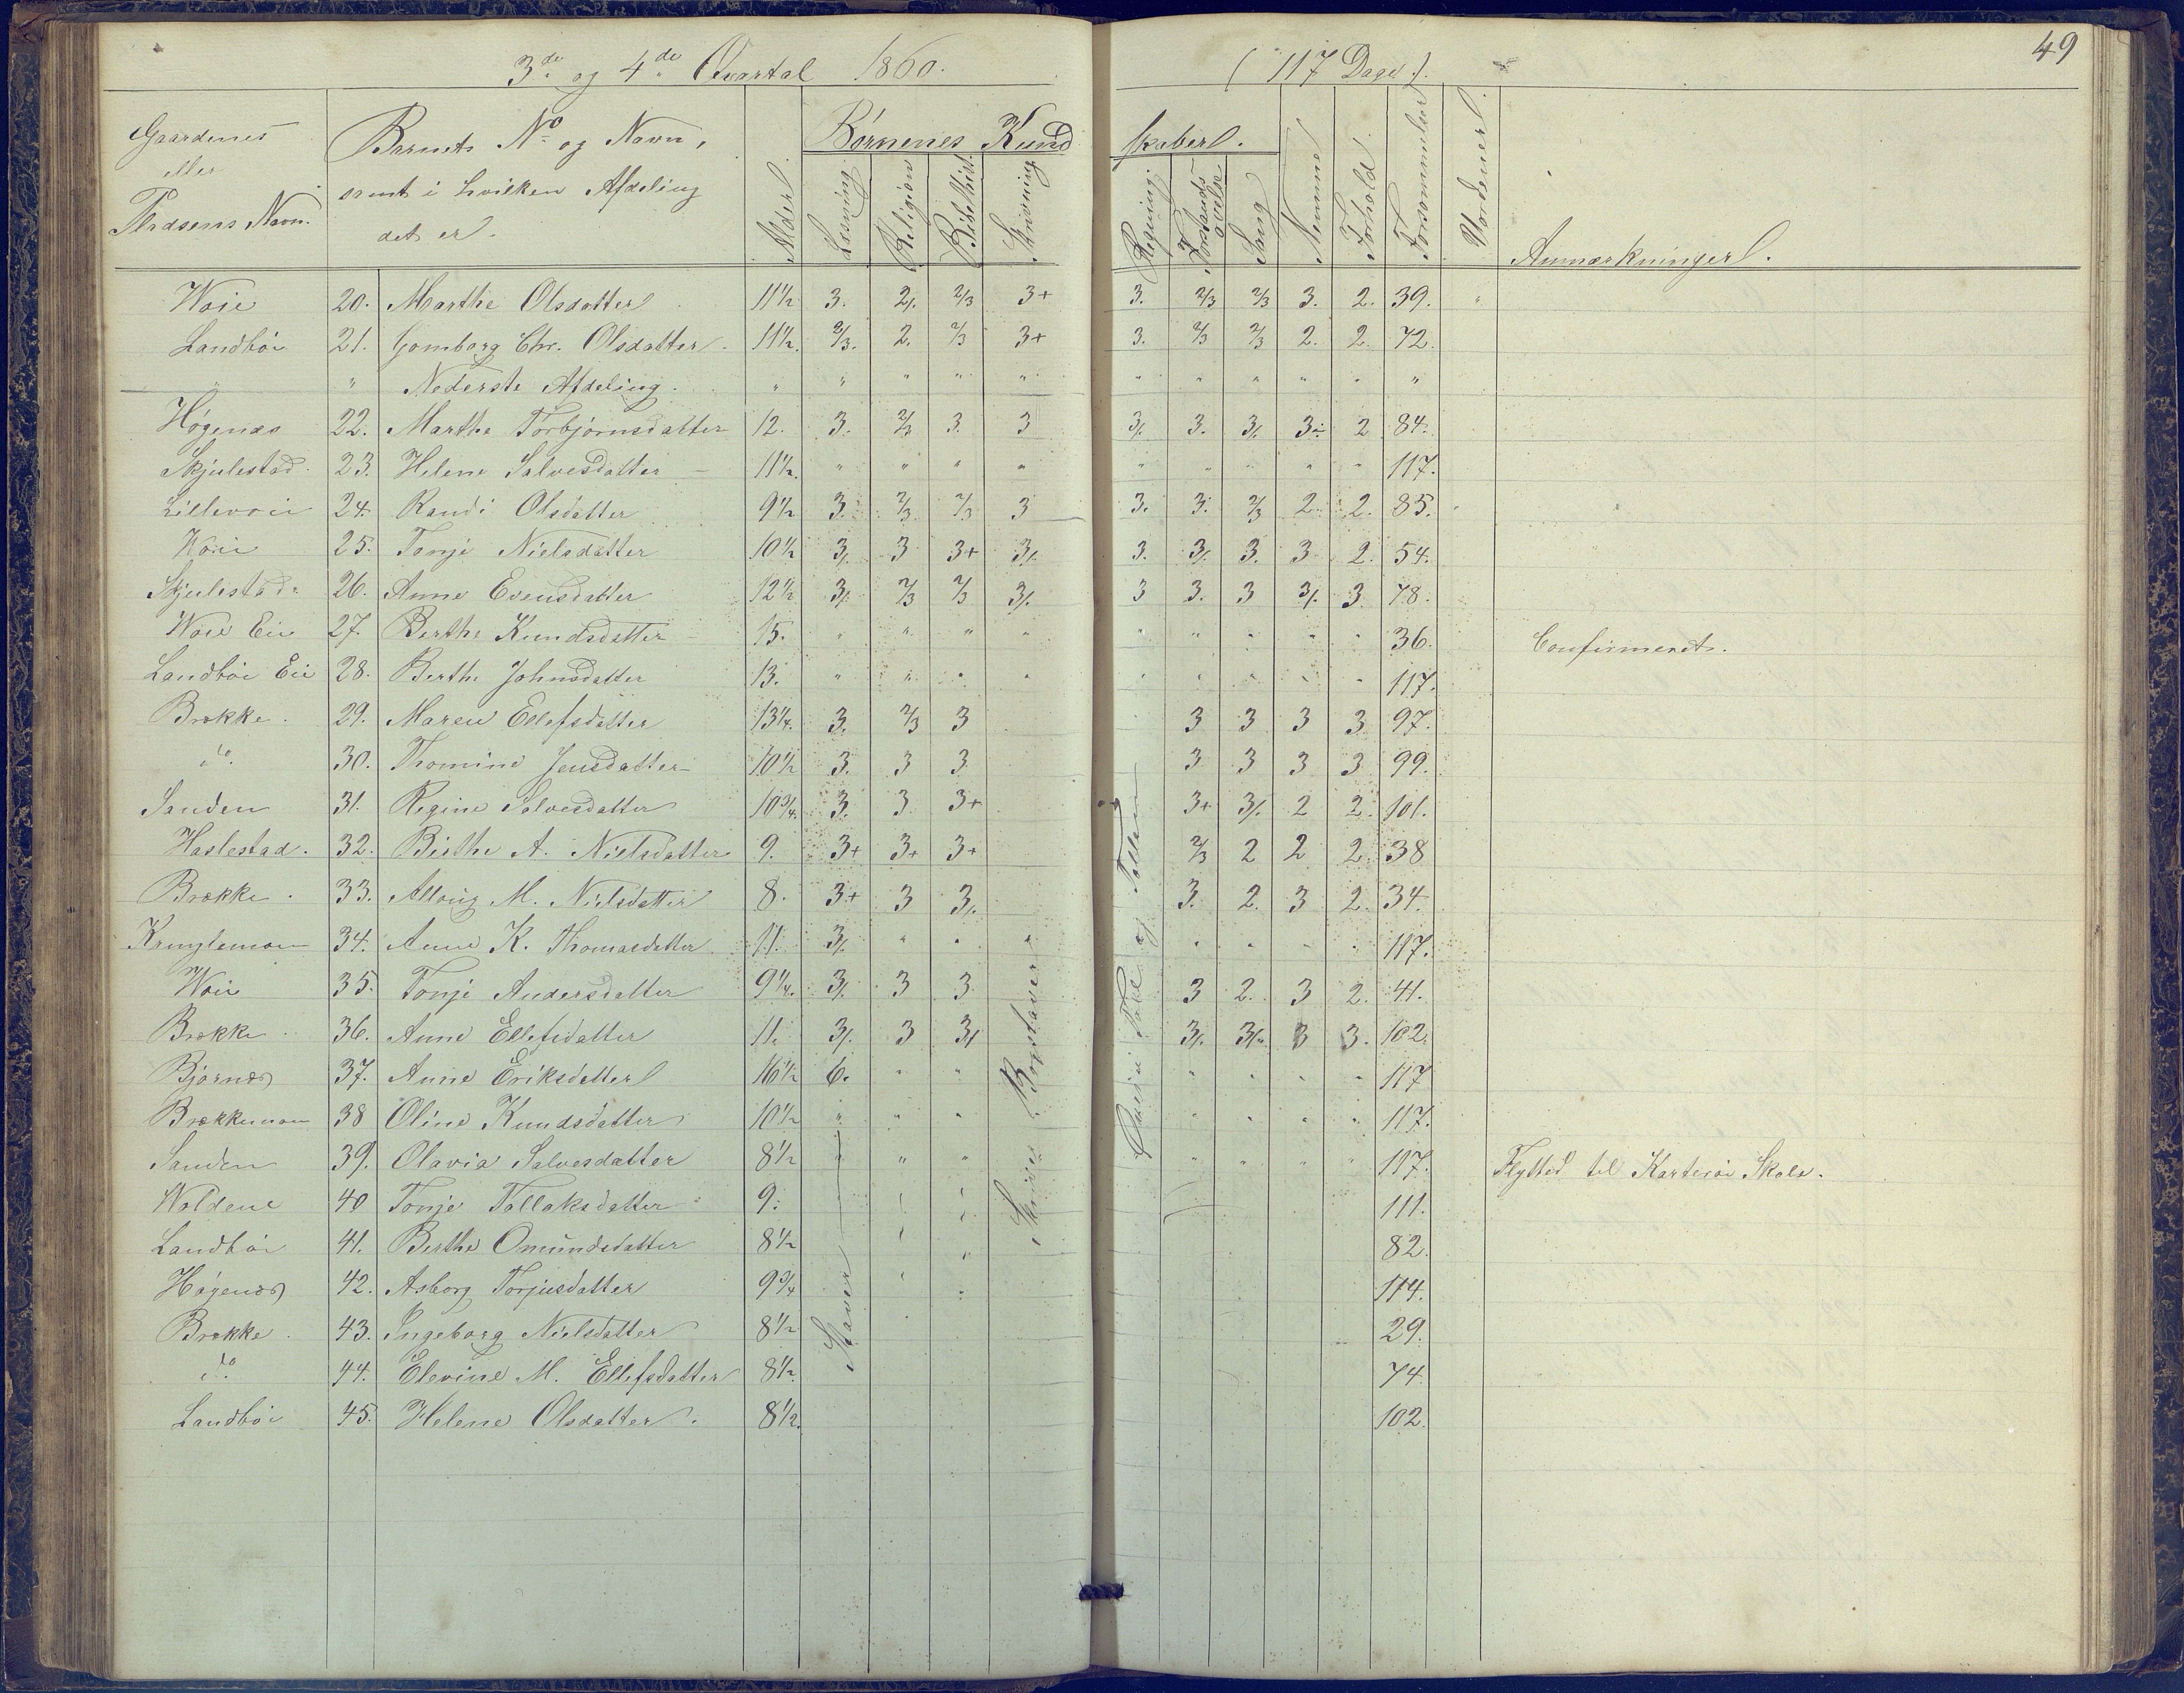 3de og 4de Qvartal 1860. ( 117 Dage ). 49
Gaardenes eller Pladsens Navn. Barnets No og Navn, samt i hvilken Afdeling det er. Alder. Børnenes Kundskaber. Læsning Religion Bibelhist. Skrivning Regning. Forstandsøvelse Sang Nemme Forhold. Forsømmelser Vurderer. Anmærkninger.
Woie 20. Marthe Olsdatter 11½ 3. 2/. 2/3 3+ 3. 2/3 2/3 3. 2. 39. "
Landbøi 21. Gomborg Chr. Olsdatter. 11½. 2/3. 2. 2/3 3+ 3. 2/3 2/3 2. 2. 72.
" " Nederste Afdeling. " " " " " " " " " " "
Høgenæs 22. Marthe Torbjørnsdatter 12. 3. 2/3 3. 3 3/. 3. 3/. 3÷ 2 84.
Skjulestad 23. Helene Salvesdatter 11½. " " " " " " " " " 117.
Lillevoie 24. Randi Olsdatter 9½ 3. 2/3. 2/3 3 3. 3. 2/3 2 2. 85.
Woie 25. Tonje Nielsdatter 10½ 3/. 3 3+ 3/. 3. 3/. 3. 3 2. 54.
Skjulestad. 26. Anne Evensdatter 12½ 3/. 2/3 2/3 3/. 3 3. 3 3/. 3. 78.
Woie Eie 27. Berthe Knudsdatter 15. " " " " " " " " " 36. Confirmeret.
Landbøi Eie 28. Berthe Johnsdatter 13. " " " " " " " " " 117.
Brække. 29. Maren Ellefsdatter 13¼. 3. 2/3 3 3 3 3 3 97.
do. 30. Thomine Jensdatter 10½ 3. 3 3 3 3 3 3 99.
Sanden 31. Regine Salvesdatter 10¾. 3. 3 3+ 3+ 3/. 2 2. 101.
Haslestad. 32. Birthe A. Nielsdatter 9. 3+ 3+ 3+ 2/3 2 2 2. 38
Brække. 33. Alloug M. Nielsdatter 8. 3+ 3 3/. 3. 2. 3 2. 34.
Krnglemoen 34. Anne K. Thomasdatter 11. 3/. " " " " " " " 117.
Woie 35. Tonje Andersdatter 9¼. 3/. 3 3 3 2. 3 2. 41.
Brække. 36. Anne Ellefsdatter 11. 3/. 3 3/ 3/. 3/. 3 3. 102.
Bjørnæs 37. Anne Eriksdatter 16½ 6. " " " " " " 117
Brækkemoen 38 Oline Knudsdatter 10½ " " " " " " " 117.
Sanden 39. Olavia Salvesdatter 8½ " " " " " " " 117. Flyttet til Karterøi Skole.
Woldene 40 Tonje Tallaksdatter 9. " " 111.
Landbøi 41. Berthe Omundsdatter 8½ " " 82.
Høgenæs 42. Asborg Torjusdatter 9¾ " " 114.
Brække. 43. Ingeborg Nielsdatter 8½ " 29.
do. 44. Elevine M. Ellefsdatter 8½. 74
Landbøi 45. Helene Olsdatter. 8½. 102.
Staver
Skriver Bogstaver
Tale og Tallene